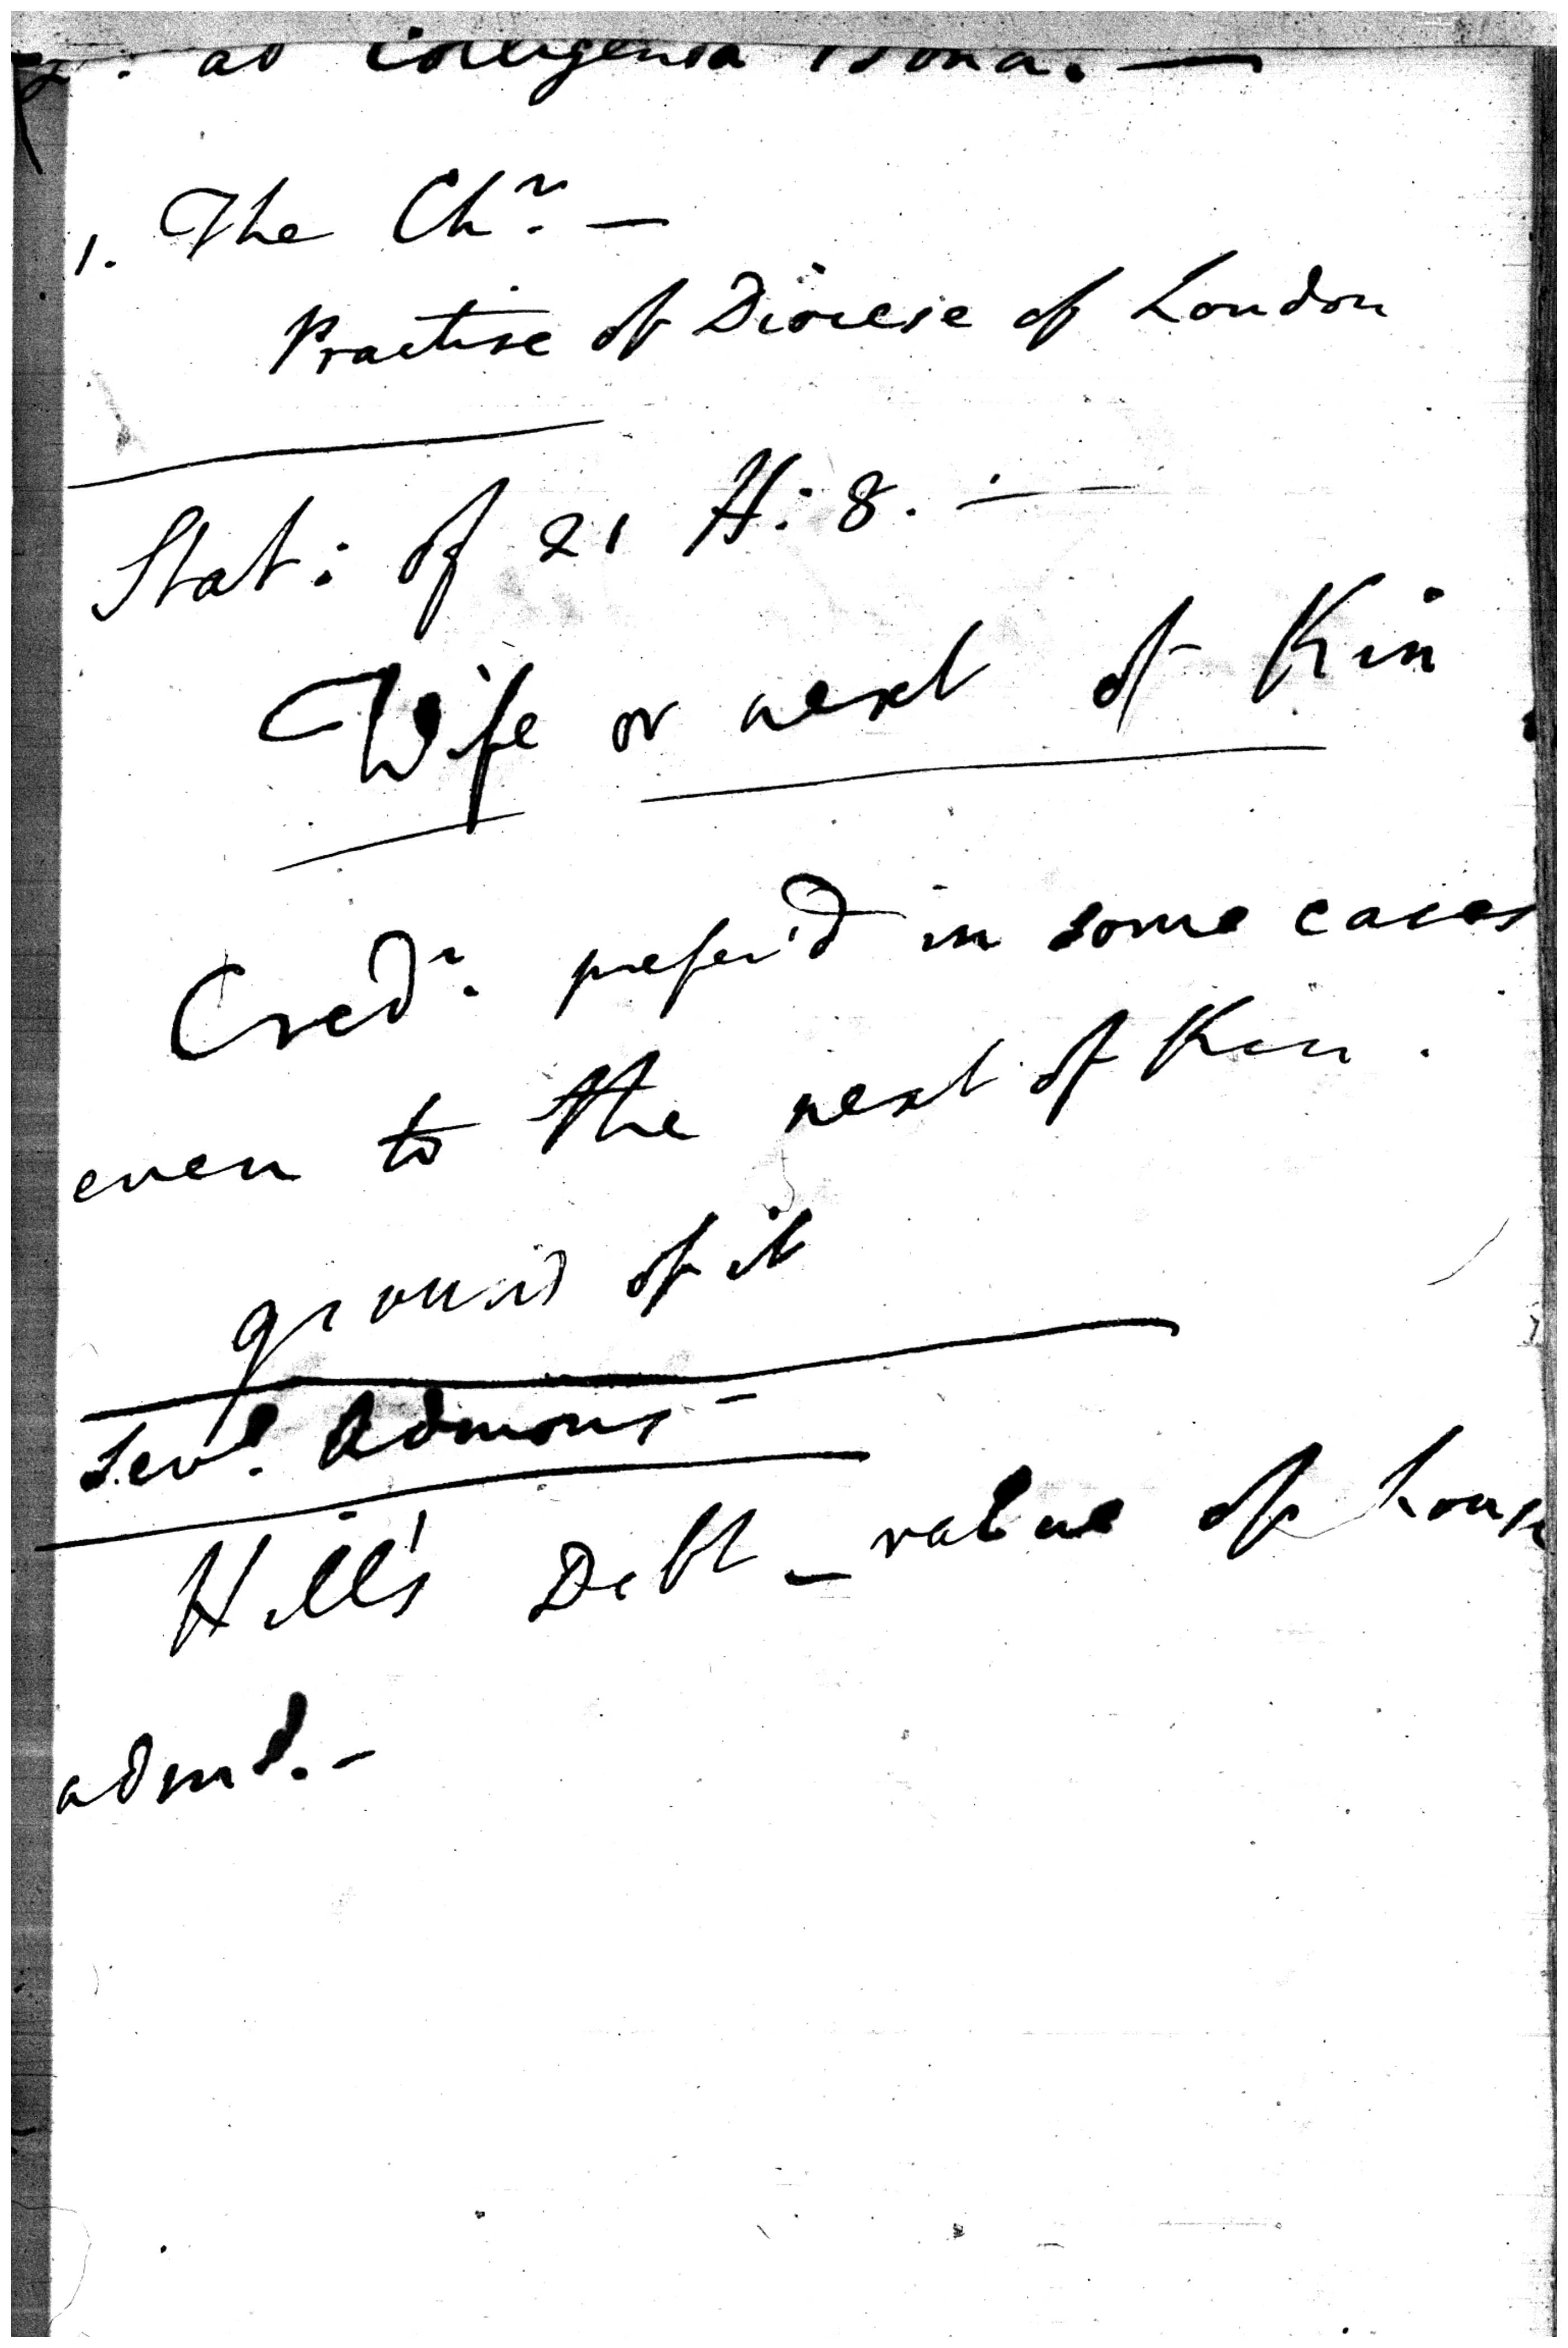 ad Colligenda Bona. —
1. The Chr. —
Practise of Diocese of London
Stat: of 21 H: 8. —
Wife or next of Kin
Credr. prefer'd in some cases
even to the next of Kin.
ground of it
Sevl. Admons —
Hill's Debt — value of house
admd. —